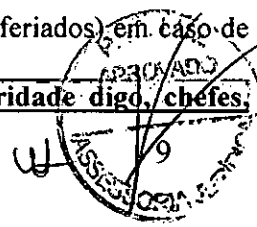 feriados) em caso de
ridade digo, chefes,
9
APROVADO
ASSESSORIA